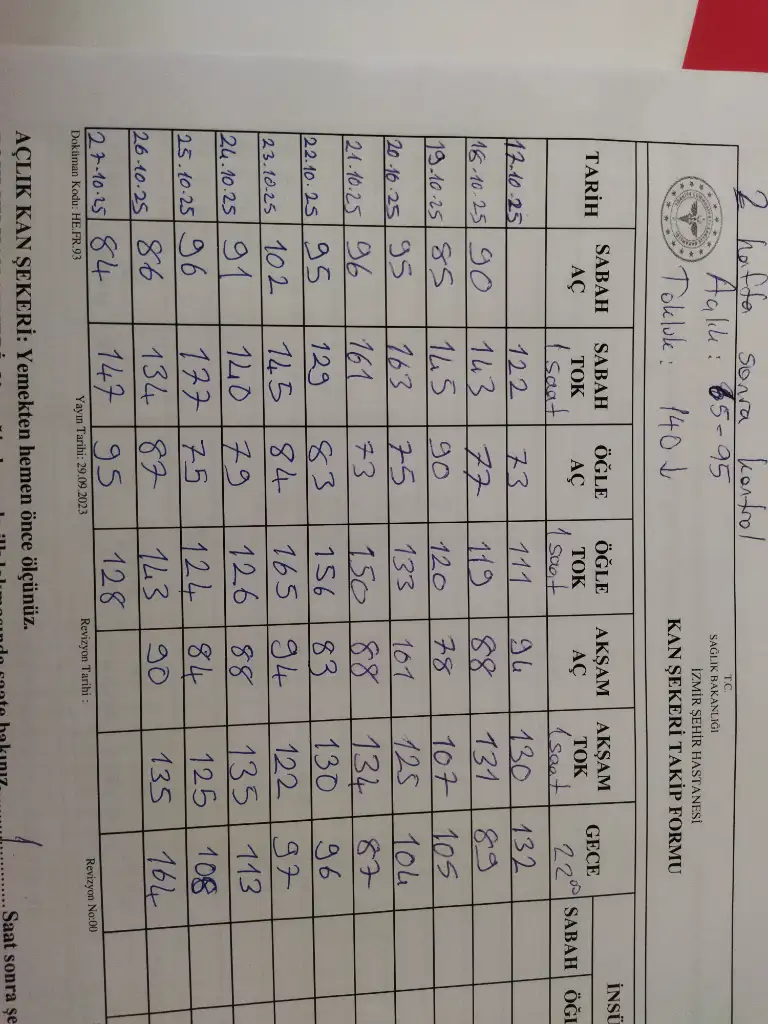 2 hafta sonra kontrol
Açlık: 65-95
Tokluk: 140↓
T.C.
SAĞLIK BAKANLIĞI
İZMİR ŞEHİR HASTANESİ
KAN ŞEKERİ TAKİP FORMU
TARİH SABAH AÇ SABAH TOK 1 saat ÖĞLE AÇ ÖĞLE TOK 1 saat AKŞAM AÇ AKŞAM TOK 1 saat GECE 22⁰⁰ SABAH
17.10.25 122 73 111 94 130 132
18.10.25 90 143 77 119 88 131 89
19.10.25 85 145 90 120 78 107 105
20.10.25 95 163 75 133 101 125 104
21.10.25 96 161 73 150 88 134 87
22.10.25 95 129 83 156 83 130 96
23.10.25 102 145 84 165 94 122 97
24.10.25 91 140 79 126 88 135 113
25.10.25 96 177 75 124 84 125 108
26.10.25 86 134 87 143 90 135 164
27.10.25 84 147 95 128
Doküman Kodu: HE.FR.93 Yayın Tarihi: 29.09.2023 Revizyon Tarihi : Revizyon No:00
AÇLIK KAN ŞEKERİ: Yemekten hemen önce ölçünüz.